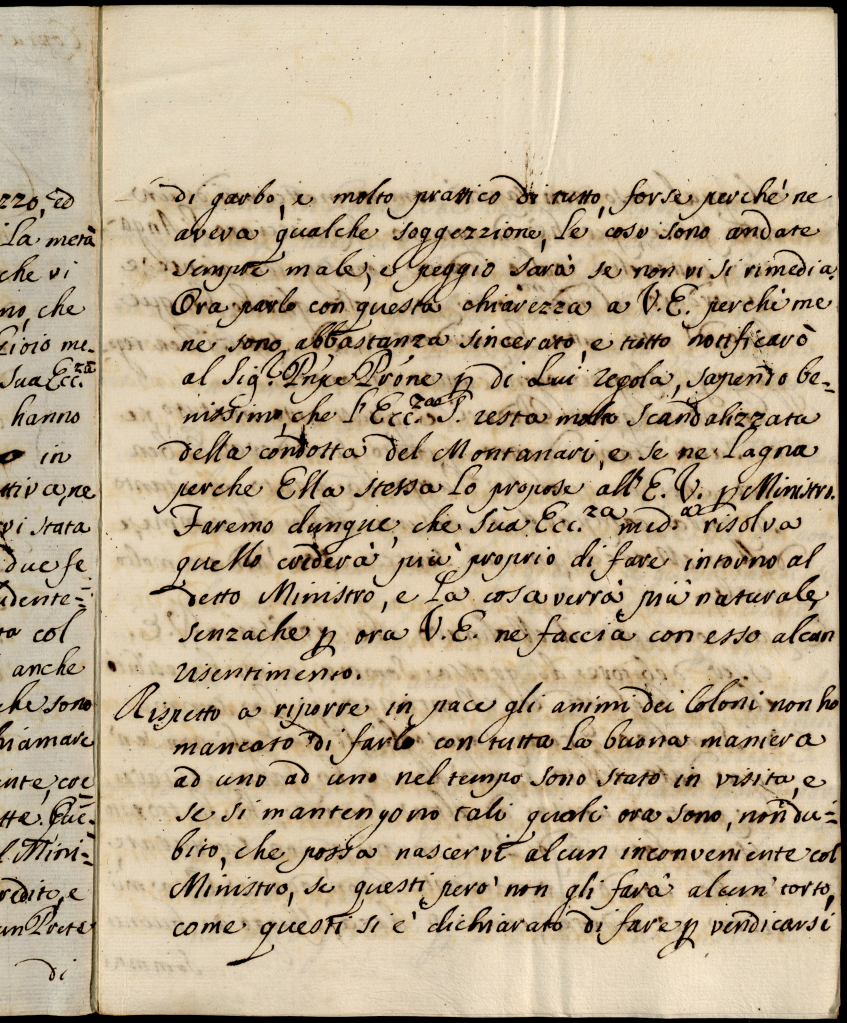 zzo, ed
La metà
che vi
no, che
me-
Sua Ecc.za
hanno
in
ne
vi stata
due fe
udente=
ta col
anche
che sono
hiamare
ente, coe
tte. Que-
l Mini=
redito, e
un Prete
di
di garbo, e molto prattico di tutto, forse perché ne
aveva qualche soggezzione, le cose sono andate
sempre male, e peggio sarà se non vi si rimedia.
Ora parlo con questa chiarezza a V.E. perchè me
ne sono abbastanza sincerato, e tutto notificarò
al Sig.r Pnpe Prone p di Lui regola, sapendo be-
nissimo, che l'Ecc.za S. resta molto scandalizzata
della condotta del Montanari, e se ne lagna
perche Ella stessa lo propose all'E.V. p Ministro.
Faremo dunque, che Sua Ecc.za med.ma risolva
quello crederà più proprio di fare intorno al
detto Ministro, e la cosa verrà più naturale,
senzache p ora V.E. ne faccia con esso alcun
risentimento.
Rispetto a riporre in pace gli animi dei Coloni non ho
mancato di farlo con tutta la buona maniera
ad uno ad uno nel tempo sono stato in visita, e
se si mantengono tali quali ora sono, non du=
bito, che possa nascervi alcun inconveniente col
Ministro, se questi però non gli farà alcun torto,
come questi si è dichiarato di fare p vendicarsi